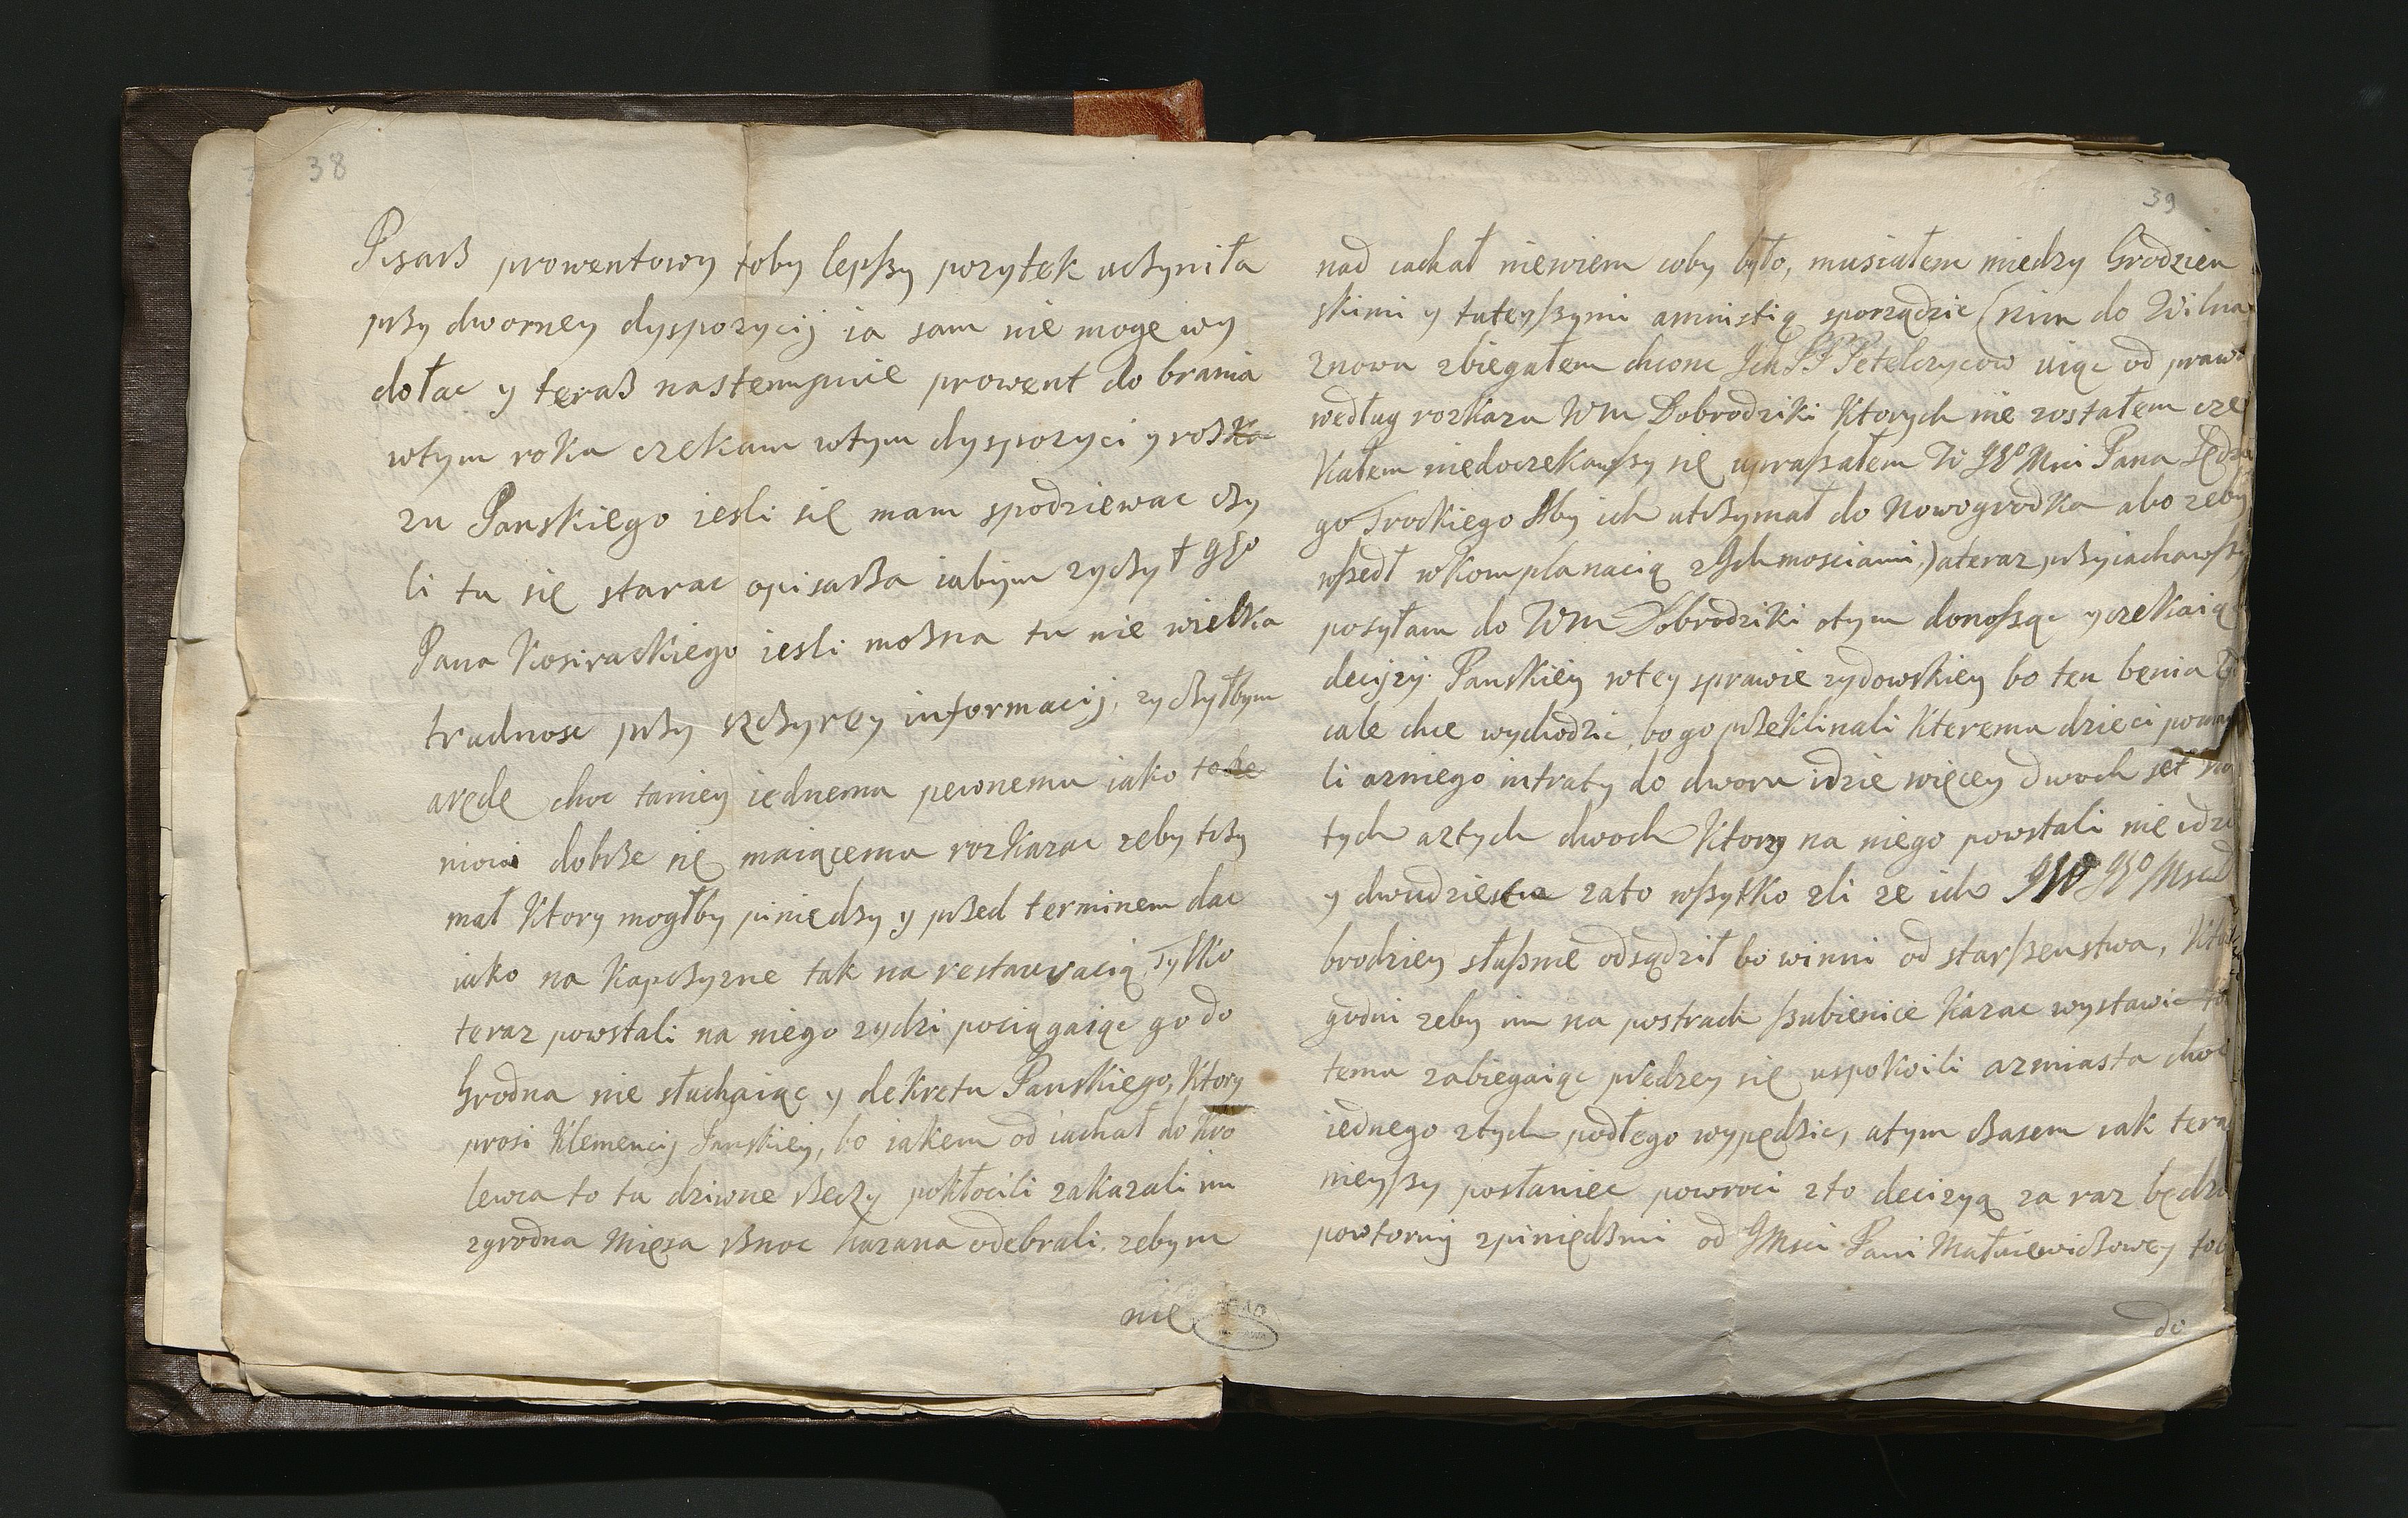 38
Pisarß prowentowy toby lepſzy pozytek uczyniła
przy dworney dyspozycij ia sam nie moge wy
dołac y teraß nastempuie prowent do brania
wtym roku czekam wtym dyspozyci y roska
zu Panskiego iesli się mam spodziewac czy
li tu się starac opisarza iabym zyczył Jgo
Pana Kosirackiego iesli moßna tu nie wielka
trudnosc przy szczyrey informacij, zyczyłbym
arędę choc taniey iednemu pewnemu iako
niowi dobrze się maiącemu rozkazac zeby trzy
mał Ktory mogłby piniędzy y przed terminem dac
iako na Kapczyzne tak na restauracią Tylko
teraz powstali na niego zydzi pociągaiąc go do
Grodna nie słuchaiąc y dekretu Panskiego, Ktory
prosi Klemencij Panskiey, bo iakem od iachał do Kro
lewca to tu dziwne rzeczy pokłocili zakazali mu
zgrodna Mięsa rznoc hazana odebrali. zebym
nie
39
nad iachał niewiem coby było, musiałem miedzy Grodzien
skimi y tuteyſzymi amnistią sporządzic (nim do Wilna
znowu zbiegałem chconc Ich PP Petelczycow uiąc od prawa
według rozkazu WM Dobrodziki Ktorych nie zostałem cze
Kałem niedoczekawſzy się upraſzałem W Jgo Mci Pana Sędzie
go Trockiego Aby ich utrzymał do Nowogrodka abo zeby
wſzedł wkomplanacią zIchmosciami,) ateraz przyiachawſzy
posyłam do WM Dobrodziki otym donoſząc yczekaiąc
decijzy. Panskiey wtey sprawie zydowskiey bo ten benia
cale chce wychodzic, bo go przeklinali Kteremu dzieci
li azniego intraty do dworu idzie więcey dwoch set
tych aztych dwoch Ktorzy na niego powstali nie idzie
y dwudziestu zato wſzytko zli ze ich JW Jgo Msc
brodziey słuſznie odsądził bo winni od starſzenstwa,
godni zeby im na postrach ſzubienice Kazac wystawic
temu zabiegaiąc prędzey się uspokoili azmiasta choc
iednego ztych podłego wypędzic, atym czasem iak tera
nieyſzy posłaniec powroci zto decizyą za raz będzie
powtorny zpiniędzmi od JMsci Pani Matuiewiczowey
do